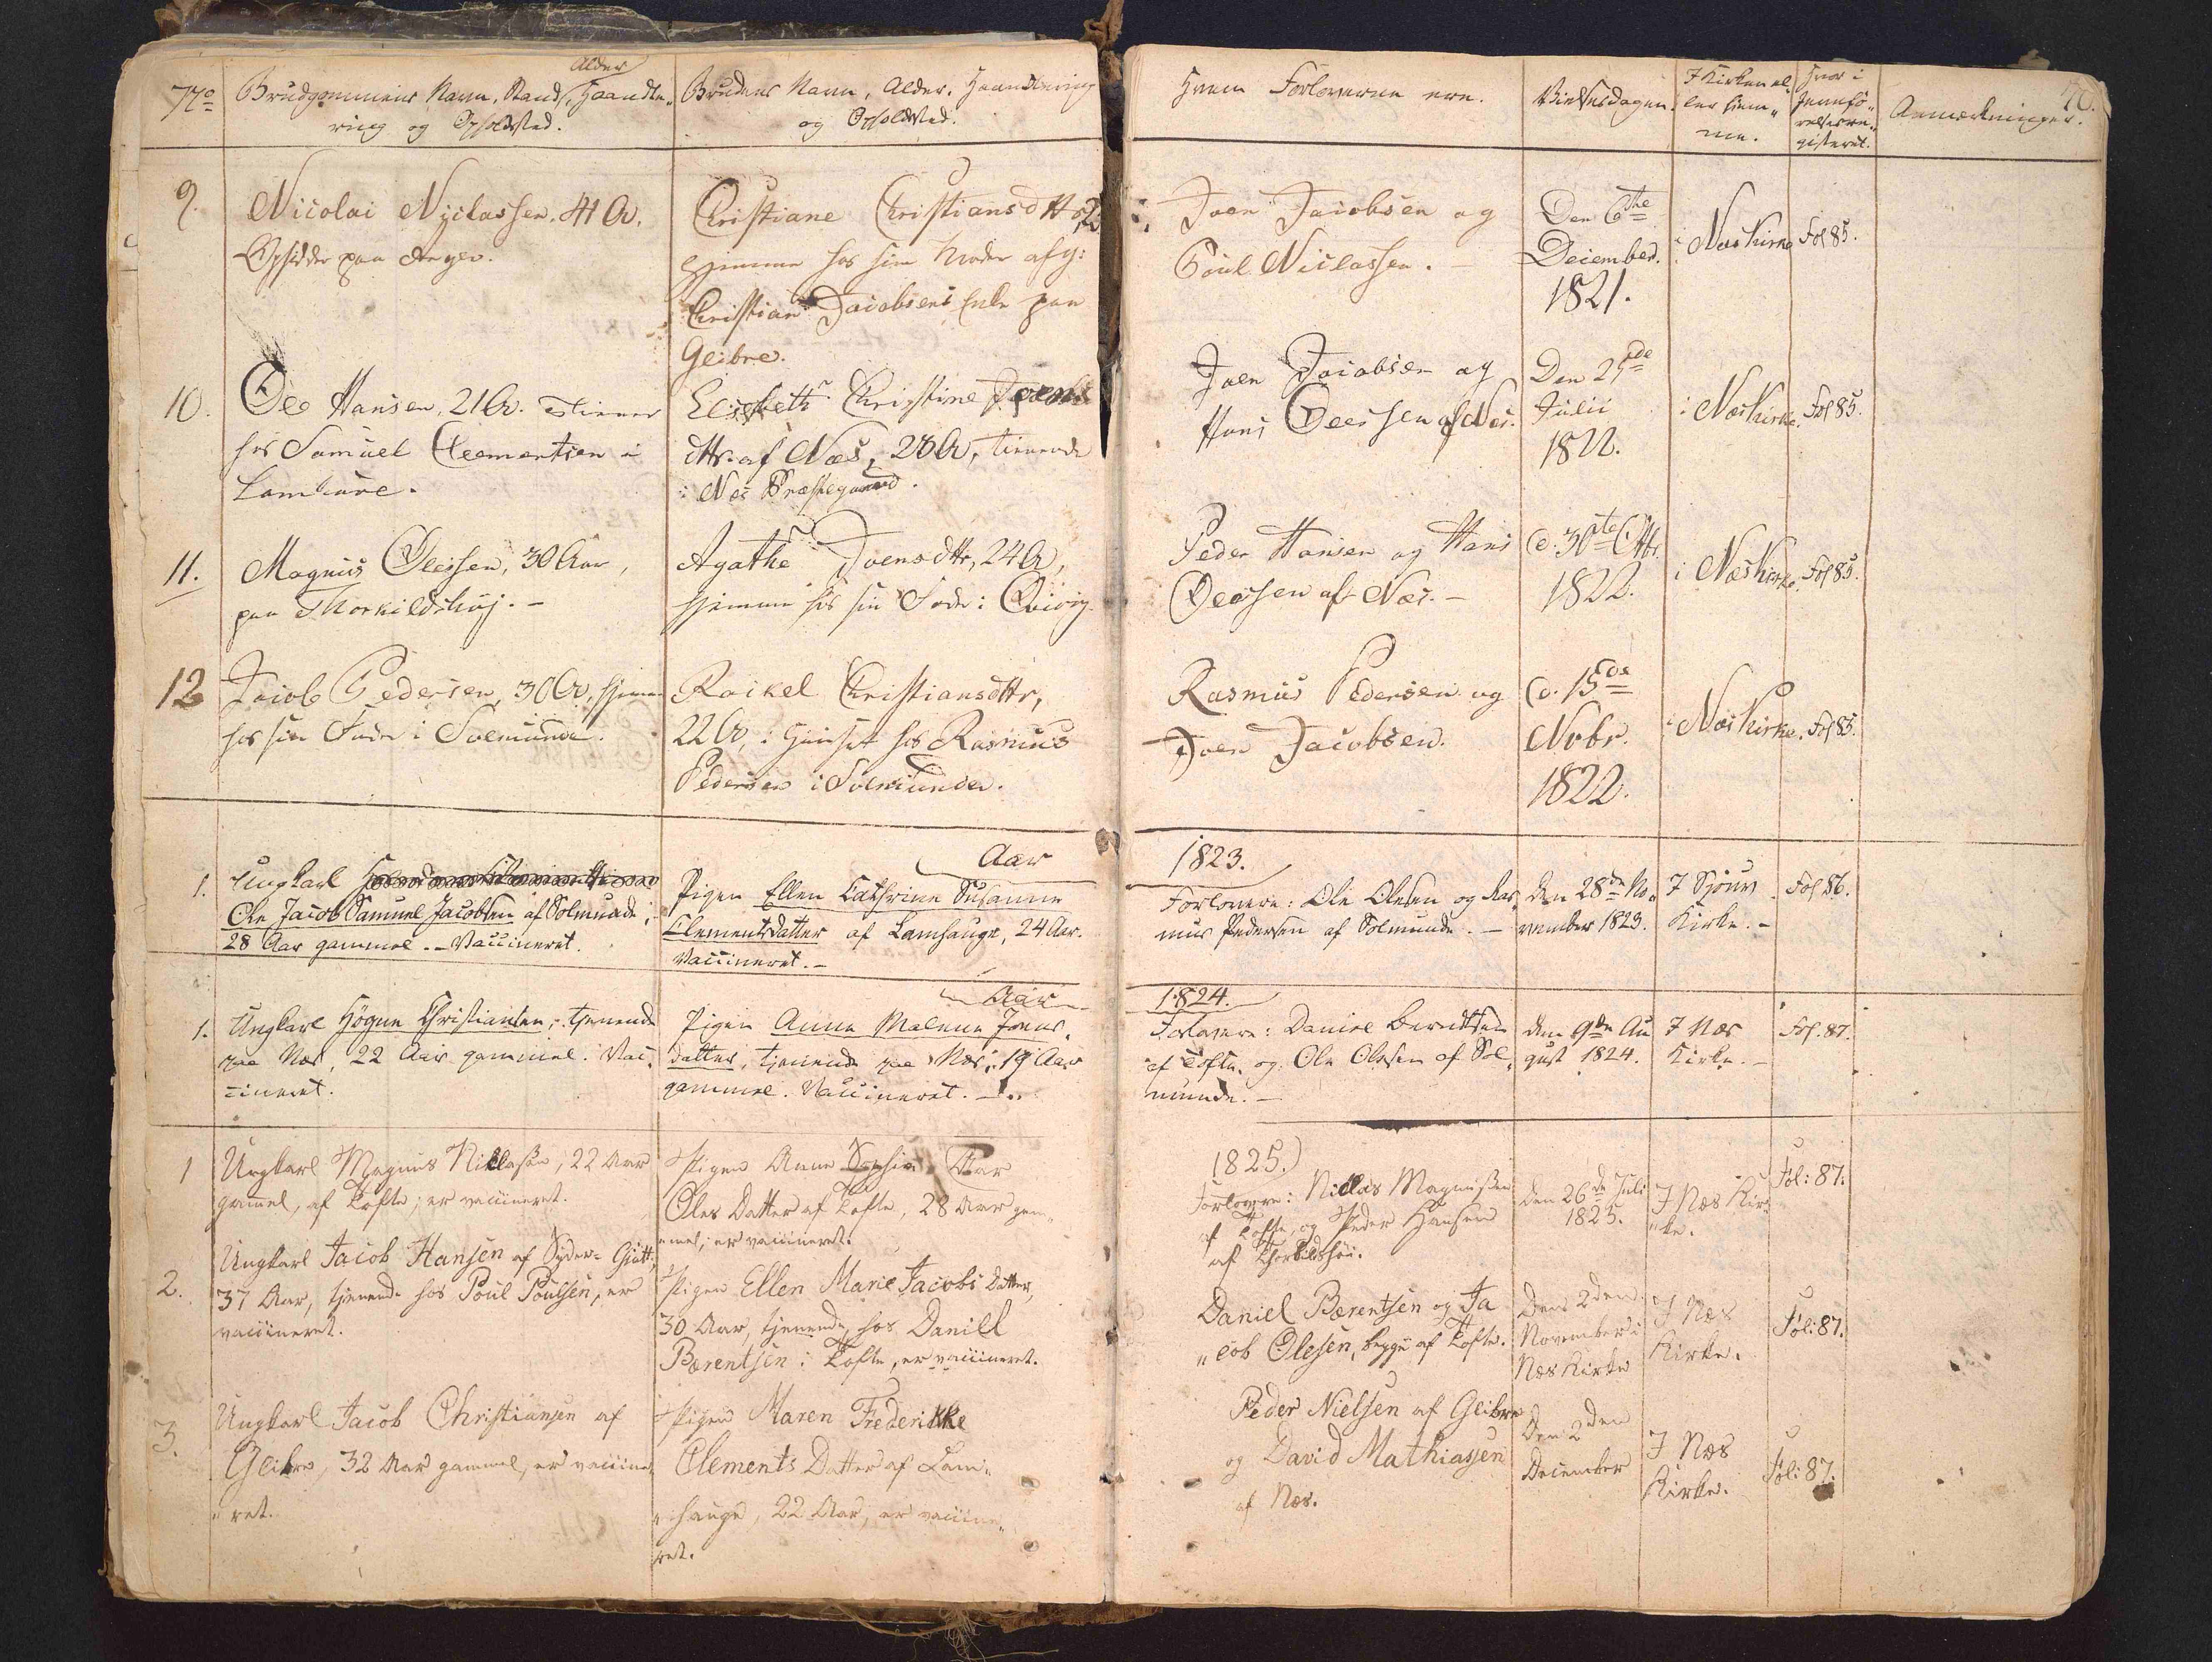 No
Brudgommens Navn, Stand, Alder, Haandte-
ring og Opholdsted.
Brudens Navn, Alder, Haandtering
og Opholdsted.
Hvem Forloverne ere.
Vielsesdagen.
I Kirken el-
ler hjem-
me.
Hvor i
Jevnfö-
relsesre-
gisteret.
Anmærkninger.
9.
Nicolai Nyclassen. 41 Ar.
Opsidder paa
Christiane Christiansdtr
hjemme hos sin Moder afg:
Christian Jacobsens Enke paa
Glibre.
Joen Jacobsen og
Poul Niclassen. -
Den 6the
December.
1821.
i Næs Kirke
Fol 85.
10.
Ole Hansen, 21 Ar. tiener
hos Samuel Clementsen i
Lamhauve.
Elisebeth Christine
dtr. af Næs, 28 Ar, tienende
i Næs Præstegaard.
Joen Jacobsen og
Hans Olessen af Næs.
Den 25de
Julii
1822.
i Næs Kirke.
Fol 85.
11.
Magnus Olessen, 30 Aar,
paa Thorkildshøj. -
Agathe Joensdtr, 24 Ar,
hjemme hos sin Fader i Qvivig.
Peder Hansen og Hans
Olessen af Næs. -
d. 30te Octbr.
1822.
i Næs Kirke.
Fol 85.
12
Jacob Pedersen, 30 Ar. hjemme
hos sin Fader i Solmunde.
Rackel Christiansdtr,
22 Ar, i Huuset hos Rasmus
Pedersen i Solmunde.
Rasmus Pedersen og
Joen Jacobsen.
d. 15de
Nobr.
1822.
i Næs Kirke.
Fol 85.
Aar
1823.
1.
Ungkarl
Ole Jacob Samuel Jacobsen af Solmunde,
28 Aar gammel. - Vaccineret.
Pigen Ellen Cathrine Susanne
Clementsdatter af Lamhauge, 24 Aar.
Vaccineret. -
Forlovere: Ole Olesen og Ras-
mus Pedersen af Solmunde. -
den 28de No-
vember 1823.
I Sjöuv
Kirke. -
Fol 86.
Aar
1824.
1.
Ungkarl Högne Christiansen, tjenende
paa Næs, 22 Aar gammel. Vac-
cineret.
Pigen Anna Malene Jonas-
datter, tjenende paa Næs, 19 Aar
gammel. Vaccineret. -
Forlovere: Daniel Berendtsen
af Tofte, og Ole Olesen af Sol-
munde. -
den 9de Au-
gust 1824.
I Næs
Kirke. -
Fol. 87.
Aar
1825.
1
Ungkarl Magnus Niclassen, 22 Aar
gamel, af Tofte; er vaccineret.
Pigen Anne Sophie
Oles Datter af Tofte, 28 Aar gam-
mel; er vaccineret.
Forlovere: Niclas Magnussen
af Tofte, og Peder Hansen
af Thorkildshöi.
Den 26de Juli
1825.
I Næs Kir-
ke.
Fol: 87.
2.
Ungkarl Jacob Hansen af Syder-Gjøtt,
37 Aar, tjenende hos Poul Poulsen, er
vaccineret.
Pigen Ellen Marie Jacobs Datter,
30 Aar, tjenende hos Daniel
Bærentsen i Tofte, er vaccineret.
Daniel Bærentsen og Ja
cob Olesen, begge af Tofte.
Den 2den
November i
Næs Kirke
I Næs
Kirke.
Fol: 87.
3.
Ungkarl Jacob Christiansen af
Glibre, 32 Aar gammel, er vaccine-
ret.
Pigen Maren Frederikke
Clements Datter af Lam-
hauge, 22 Aar, er vaccine-
ret.
Peder Nielsen af Glibre
og David Mathiassen
af Næs.
Den 2den
December
I Næs
Kirke.
Fol: 87.